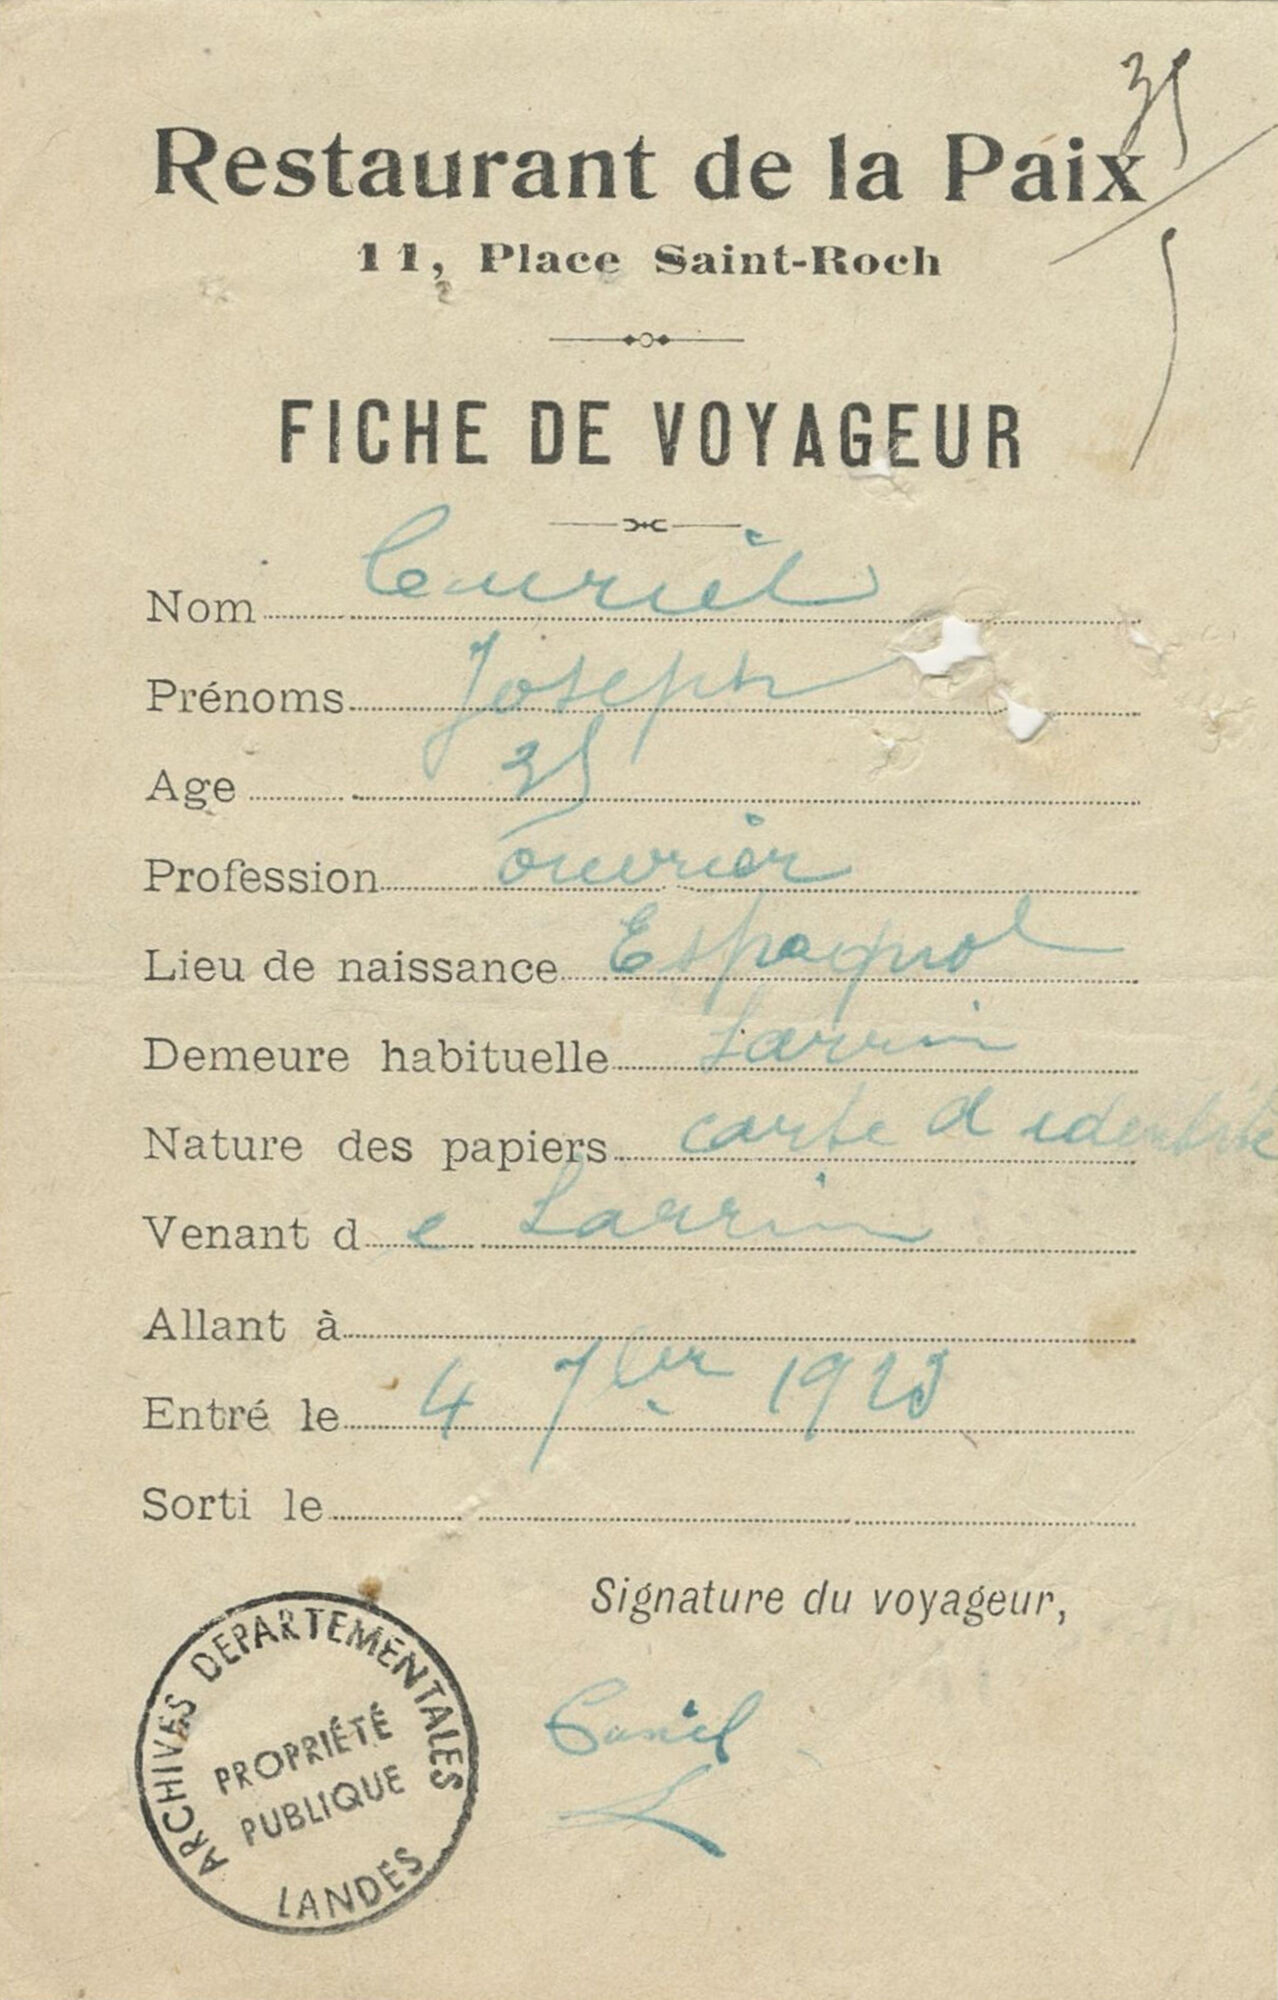 35
Restaurant de la Paix
11, Place Saint-Roch
FICHE DE VOYAGEUR
Nom Curiel
Prénoms Joseph
Age 35
Profession ouvrier
Lieu de naissance Espagnol
Demeure habituelle Larrin
Nature des papiers carte d identité
Venant de Larrin
Allant à
Entré le 4 7bre 1923
Sorti le
Signature du voyageur,
Curiel
ARCHIVES DEPARTEMENTALES
PROPRIÉTÉ
PUBLIQUE
LANDES